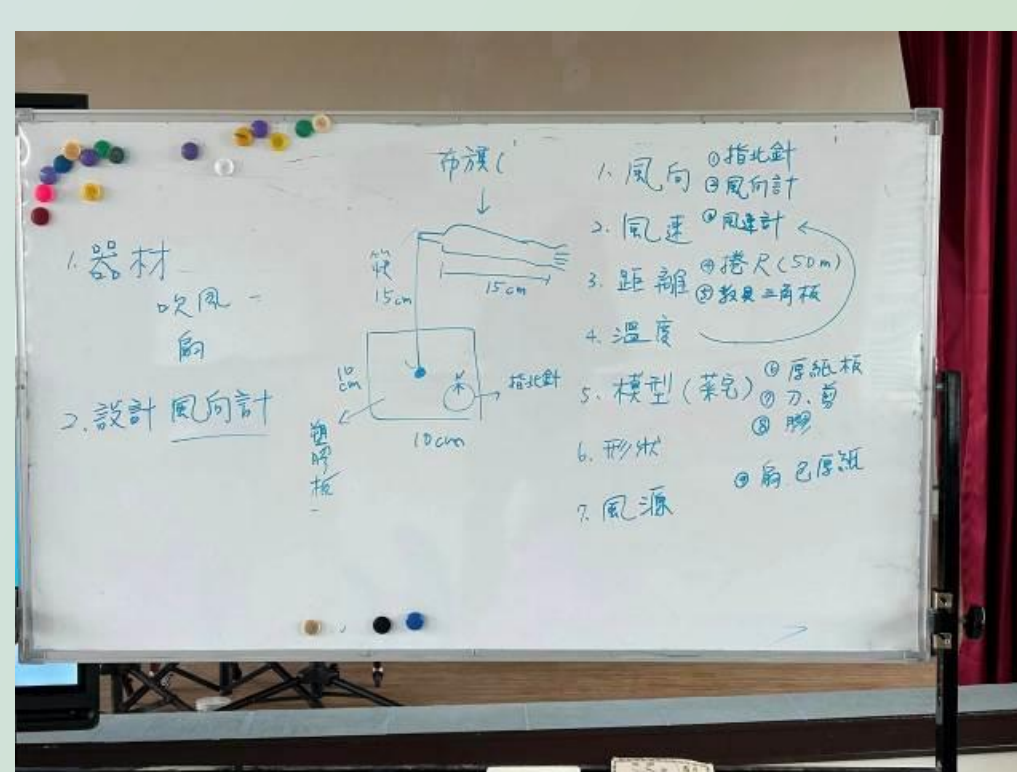 1. 器材
吹風-
扇
2. 設計 風向計
布旗(
筷
15cm
15cm
10
cm
指北針
10cm
塑
膠
板
1. 風向 ①指北針
②風向計
2. 風速 ③風速計
3. 距離 ④捲尺(50m)
⑤教具三角板
4. 溫度
5. 模型(菜宅) ⑥厚紙板
⑦刀.剪
⑧膠
6. 形狀
⑨扇.色厚紙
7. 風源